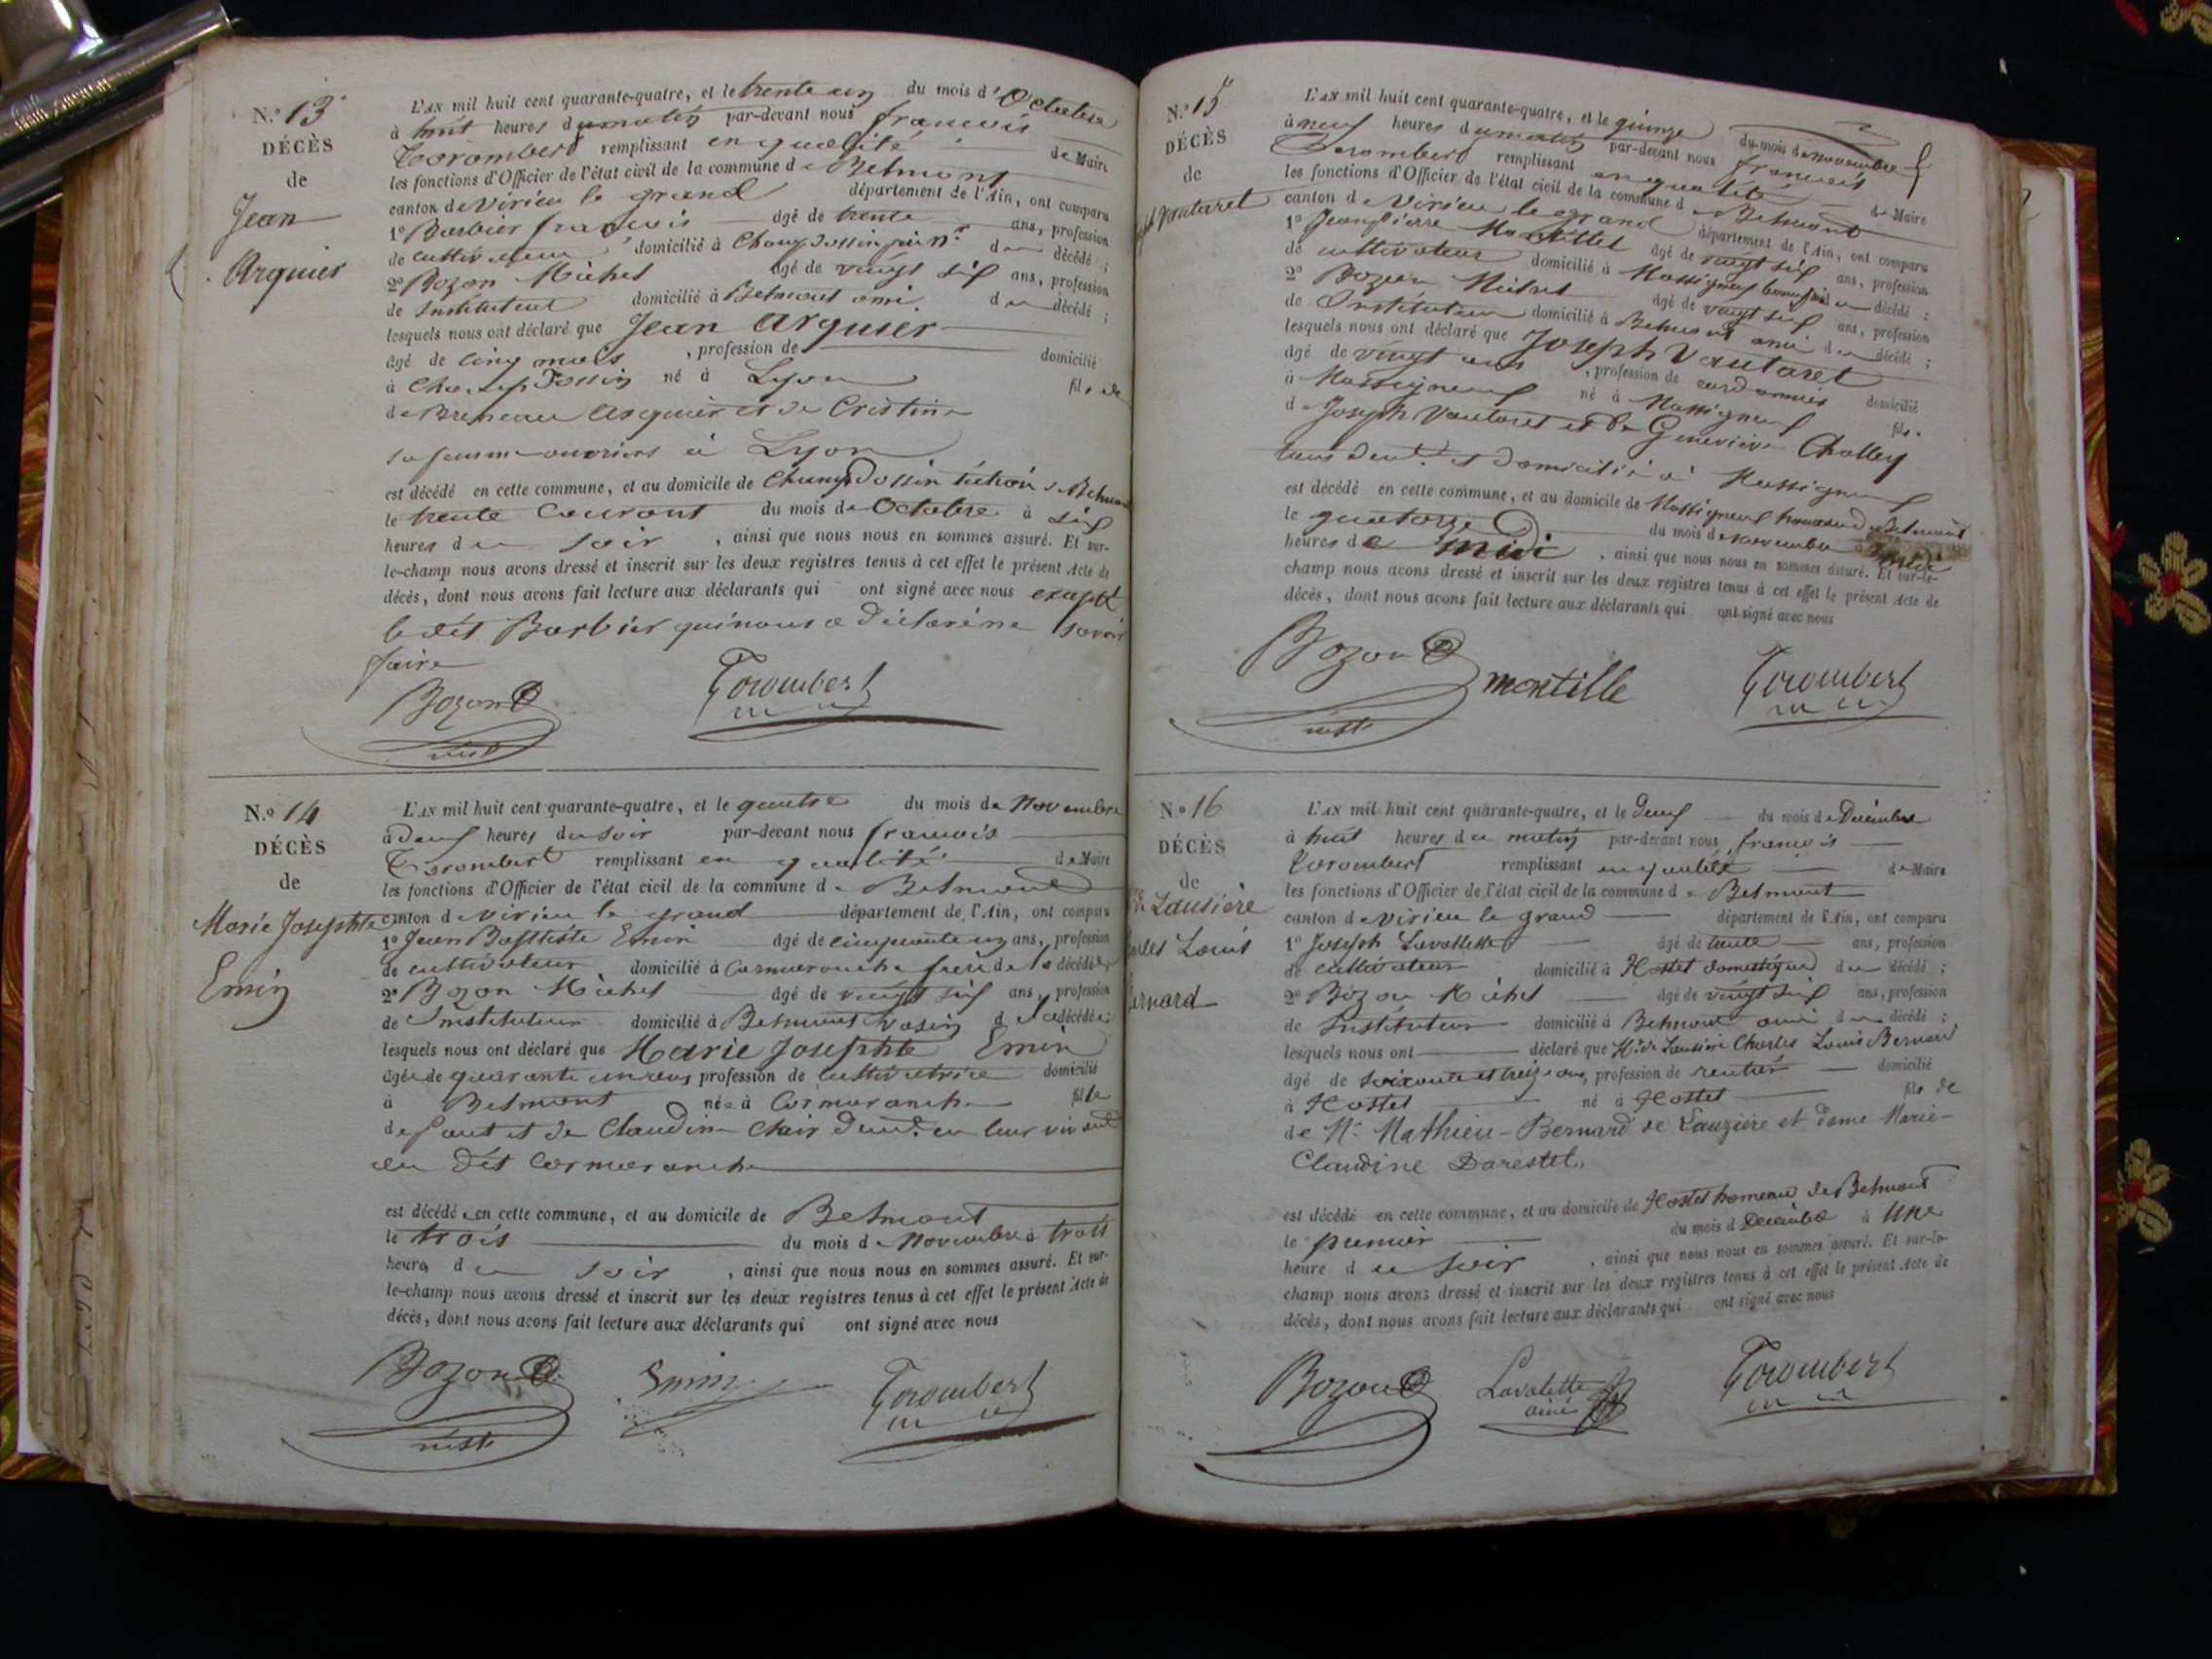 N.º 13
DÉCÈS
de
Jean
Arquier
L'AN mil huit cent quarante-quatre, et le trente un du mois d'Octobre
à huit heures du matin par-devant nous francois
Torombert remplissant en qualité de Maire
les fonctions d'Officier de l'état civil de la commune de Belmont
canton de Virieu le grand département de l'Ain, ont comparu
1º Barbier francois âgé de trente ans, profession
de cultivateur domicilié à Champdossin du décédé ;
2º Bozon Michel âgé de vingt six ans, profession
de Instituteur domicilié à Belmont ami du décédé ;
lesquels nous ont déclaré que Jean Arquier
âgé de cinq mois , profession de domicilié
à Champ Dossin né à Lyon fils de
de Arquier et de Cristine
sa femme ouvriers à Lyon
est décédé en cette commune, et au domicile de Champdossin section de Belmont
le trente Courant du mois de Octobre à six
heures du soir , ainsi que nous nous en sommes assuré. Et sur-
le-champ nous avons dressé et inscrit sur les deux registres tenus à cet effet le présent Acte de
décès, dont nous avons fait lecture aux déclarants qui ont signé avec nous excepté
le dit Barbier qui nous a déclaré ne savoir
faire
Bozon Torombert
N.º 14
DÉCÈS
de
Marie Josephte
Emin
L'AN mil huit cent quarante-quatre, et le quatre du mois de Novembre
à deux heures du soir par-devant nous francois
Torombert remplissant en qualité de Maire
les fonctions d'Officier de l'état civil de la commune de Belmont
canton de Virieu le grand département de l'Ain, ont comparu
1º Jean Baptiste Emin âgé de cinquante un ans, profession
de cultivateur domicilié à Cormaranche frère de la décédée
2º Bozon Michel âgé de vingt six ans, profession
de Instituteur domicilié à Belmont voisin de la décédée ;
lesquels nous ont déclaré que Marie Josephte Emin
âgée de quarante un ans profession de cultivatrice domicilié
à Belmont née à Cormaranche fille
de et de Claudine Clair en leur vivant
au dit Cormaranche
est décédée en cette commune, et au domicile de Belmont
le trois du mois de Novembre à trois
heures du soir , ainsi que nous nous en sommes assuré. Et sur-
le-champ nous avons dressé et inscrit sur les deux registres tenus à cet effet le présent Acte de
décès, dont nous avons fait lecture aux déclarants qui ont signé avec nous
Bozon Emin Torombert
N.º 15
DÉCÈS
de
Vautaret
L'AN mil huit cent quarante-quatre, et le quinze du mois de novembre
à neuf heures du matin par-devant nous francois
Torombert remplissant en qualité de Maire
les fonctions d'Officier de l'état civil de la commune de Belmont
canton de Virieu le grand département de l'Ain, ont comparu
1º Jean Pierre âgé de vingt six ans, profession
de cultivateur domicilié à Massigneux du décédé ;
2º Bozon Michel âgé de vingt six ans, profession
de Instituteur domicilié à Belmont ami du décédé ;
lesquels nous ont déclaré que Joseph Vautaret
âgé de vingt ans , profession de cordonnier domicilié
à Massigneux né à Massigneux fils
de Joseph Vautaret et de Geneviève Cholley
domicilié à Massigneux
est décédé en cette commune, et au domicile de Massigneux hameau de Belmont
le quatorze du mois de novembre à midi
heures de midi , ainsi que nous nous en sommes assuré. Et sur-le-
champ nous avons dressé et inscrit sur les deux registres tenus à cet effet le présent Acte de
décès, dont nous avons fait lecture aux déclarants qui ont signé avec nous
Bozon montille Torombert
N.º 16
DÉCÈS
de
de Lausière
Louis
L'AN mil huit cent quarante-quatre, et le deux du mois de Décembre
à huit heures du matin par-devant nous francois
Torombert remplissant en qualité de Maire
les fonctions d'Officier de l'état civil de la commune de Belmont
canton de Virieu le grand département de l'Ain, ont comparu
1º Joseph Lavallette âgé de trente ans, profession
de cultivateur domicilié à Hostel domestique du décédé ;
2º Bozon Michel âgé de vingt six ans, profession
de Instituteur domicilié à Belmont ami du décédé ;
lesquels nous ont déclaré que Mr de Lausière Charles Louis Bernard
âgé de soixante et treize ans, profession de rentier domicilié
à Hostel né à Hostel fils de
de Mr Mathieu-Bernard de Lauzière et dame Marie-
Claudine Darestel.,
est décédé en cette commune, et au domicile de Hostel hameau de Belmont
le premier du mois d Décembre à une
heure du soir , ainsi que nous nous en sommes assuré. Et sur-le-
champ nous avons dressé et inscrit sur les deux registres tenus à cet effet le présent Acte de
décès, dont nous avons fait lecture aux déclarants qui ont signé avec nous
Bozon Lavalette ainé Torombert